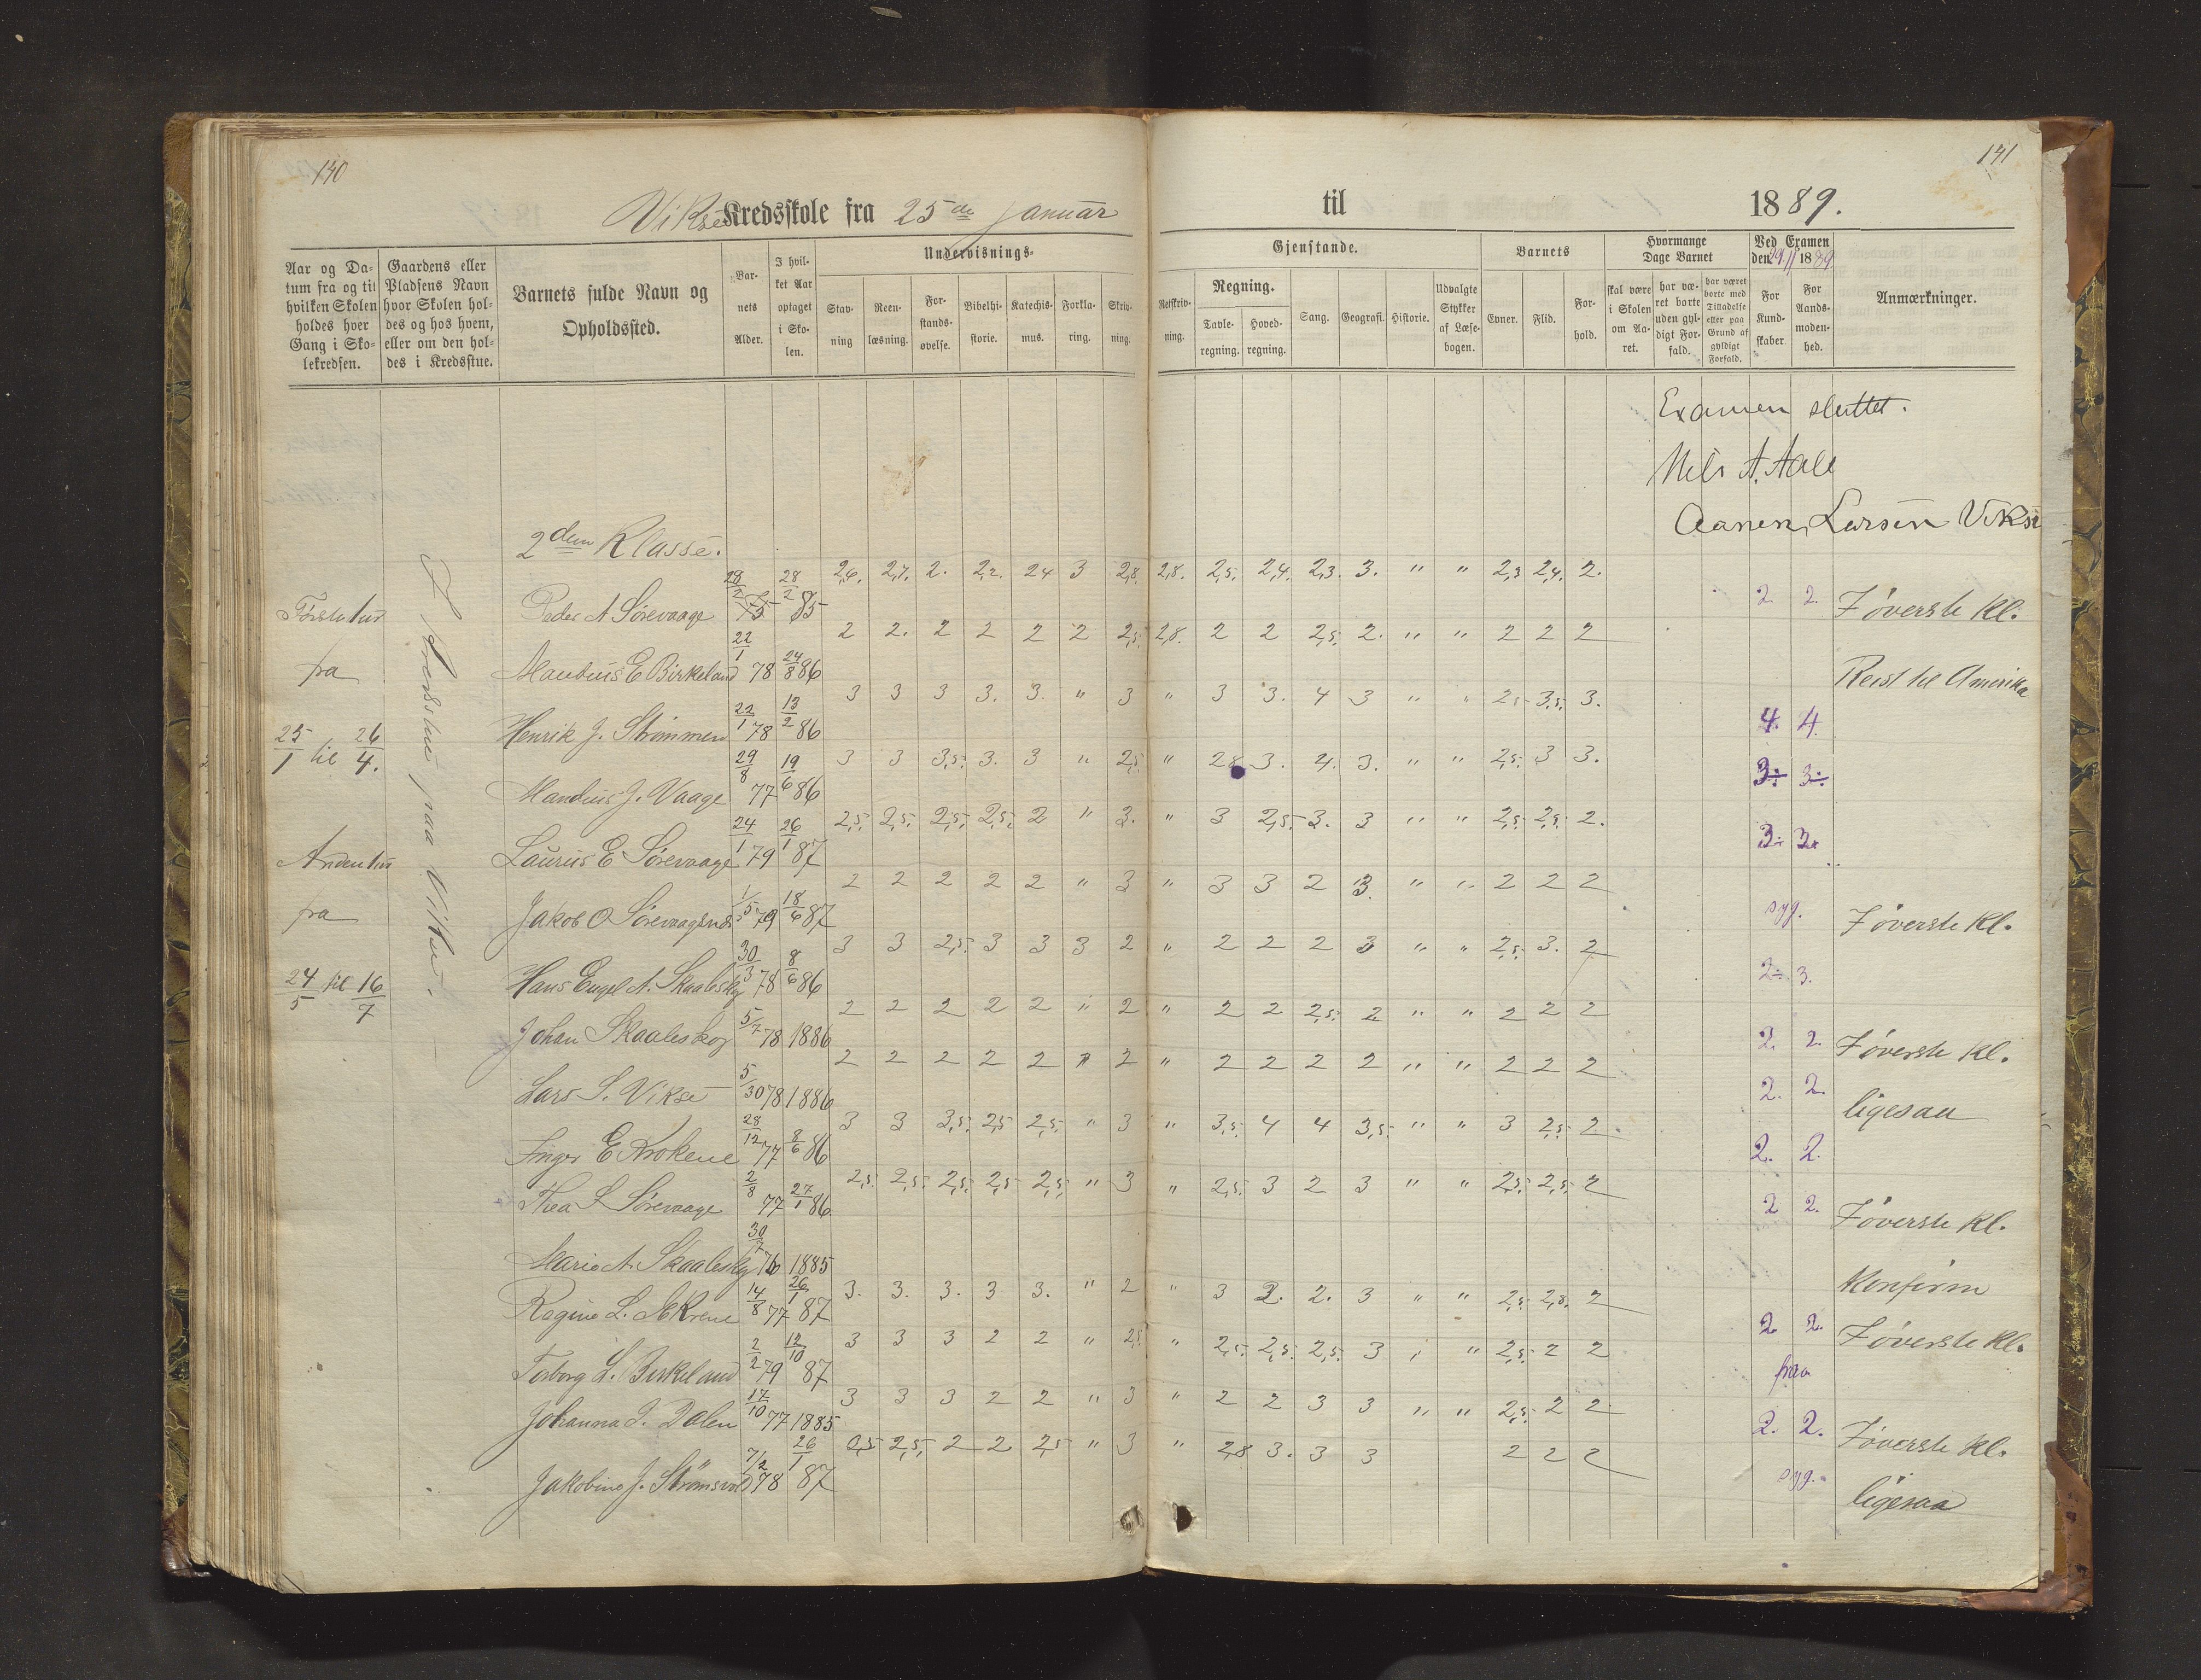 140
Viksø Kredsskole fra 25de Januar
Aar og Datum fra og til hvilken Skolen holdes hver Gang i Skolekredsen.
Gaardens eller Pladsens Navn hvor Skolen holdes og hos hvem, eller om den holdes i Kredsstue.
Barnets fulde Navn og Opholdssted.
Barnets Alder.
I hvilket Aar optaget i Skolen.
Undervisnings-
Stavning
Reenlæsning.
Forstandsøvelse.
Bibelhistorie.
Katechismus.
Forklaring.
Skrivning.
141
til 1889.
Gjenstande.
Retskrivning.
Regning.
Tavleregning.
Hovedregning.
Sang.
Geografi.
Historie.
Udvalgte Stykker af Læsebogen.
Barnets
Evner.
Flid.
Forhold.
Hvormange Dage Barnet
skal være i Skolen om Aaret.
har været borte uden gyldigt Forfald.
har været borte med Tilladelse eller paa Grund af gyldigt Forfald.
Ved Examen den 29/11 1889
For Kundskaber
For Aandsmodenhed.
Anmærkninger.
Examen sluttet.
Nils A. Aale
Aanen Larsen Viksø
2den Klasse.
Første tur
fra
25/1 til 26/4.
Anden tur
fra
24/5 til 16/7
Peder A Sørevaage 28/2 75 28/2 85 2,6. 2,7. 2. 2,2. 2,4 3 2,8. 2,8. 2,5. 2,4. 2,3. 3. " " 2,3 2,4. 2. 2. 2. I øverste Kl.
Mandius E Birkeland 22/1 78 24/8 86 2 2. 2 2 2 2 2,5. 2,8. 2 2 2,5. 2. " " 2 2 2 Reist til Amerika
Henrik J. Strømmen 22/1 78 13/2 86 3 3 3 3. 3. " 3 " 3 3. 4 3 " " 2,5 3,5. 3. 4. 4.
Mandius J. Vaage 29/8 77 19/6 86 3 3 3,5. 3. 3 " 2,5. " 2,8 3. 4. 3. " " 2,5. 3 3. 3÷ 3÷
Laurus E Sørevaage 24/1 79 26/1 87 2,5. 2,5. 2,5. 2,5. 2 " 3. " 3 2,5. 3. 3 " " 2,5. 2,5. 2. 3÷ 3+
Jakob O Sørevaagsnes 1/5 79 18/6 87 2 2 2 2 2 " 3 " 3 3 2 3. " " 2 2 2 syg. I øverste Kl.
Hans Engel A. Skaaleskog 30/3 78 8/6 86 3 3 2,5. 3 3 3 2 " 2 2 2 3 " " 2,5. 3. 2 2÷ 3.
Johan Skaaleskog 5/7 78 1886 2 2 2 2 2 " 2 " 2 2 2,5. 2 " " 2 2 2 2. 2. I øverste Kl.
Lars S. Vikse 5/30 78 1886 2 2 2 2 2 " 2 " 2 2 2 2 " " 2 2 2 2. 2. ligesaa
Inger E Krokene 28/12 77 8/6 86 3 3 3,5. 2,5 2,5. " 3 " 3,5. 4 4 3,5. " " 3 2,5. 2. 2. 2.
Thea L Sørevaage 2/8 77 27/1 86 2,5. 2,5. 2,5. 2,5 2,5. " 3 " 2,5. 3 2 3 " " 2,5. 2,5. 2 2 2. I øverste Kl.
Marie A. Skaaleskog 30/7 76 1885 Konfirm
Regine L. 14/8 77 26/1 87 3. 3. 3. 3 3. " 2 " 3 2. 2. 3 " " 2,5. 2,8. 2 2. 2. I øverste Kl.
Torborg L. Birkeland 2/2 79 12/10 87 3 3 3 2 2 " 2,5. " 2,5. 2,5. 2,5. 3 " " 2,5. 2 2
Johanna L. Dalen 17/10 77 1885 3 3 3 2 2 " 3 " 2 2 3 3 " " 2,5. 2 2 2. 2. I øverste Kl.
Jakobine J. Strømsvold 7/2 78 26/1 87 2,5 2,5. 2 2 2,5 " 3 " 2,8 3. 3 3 2 2 2 syg. ligesaa